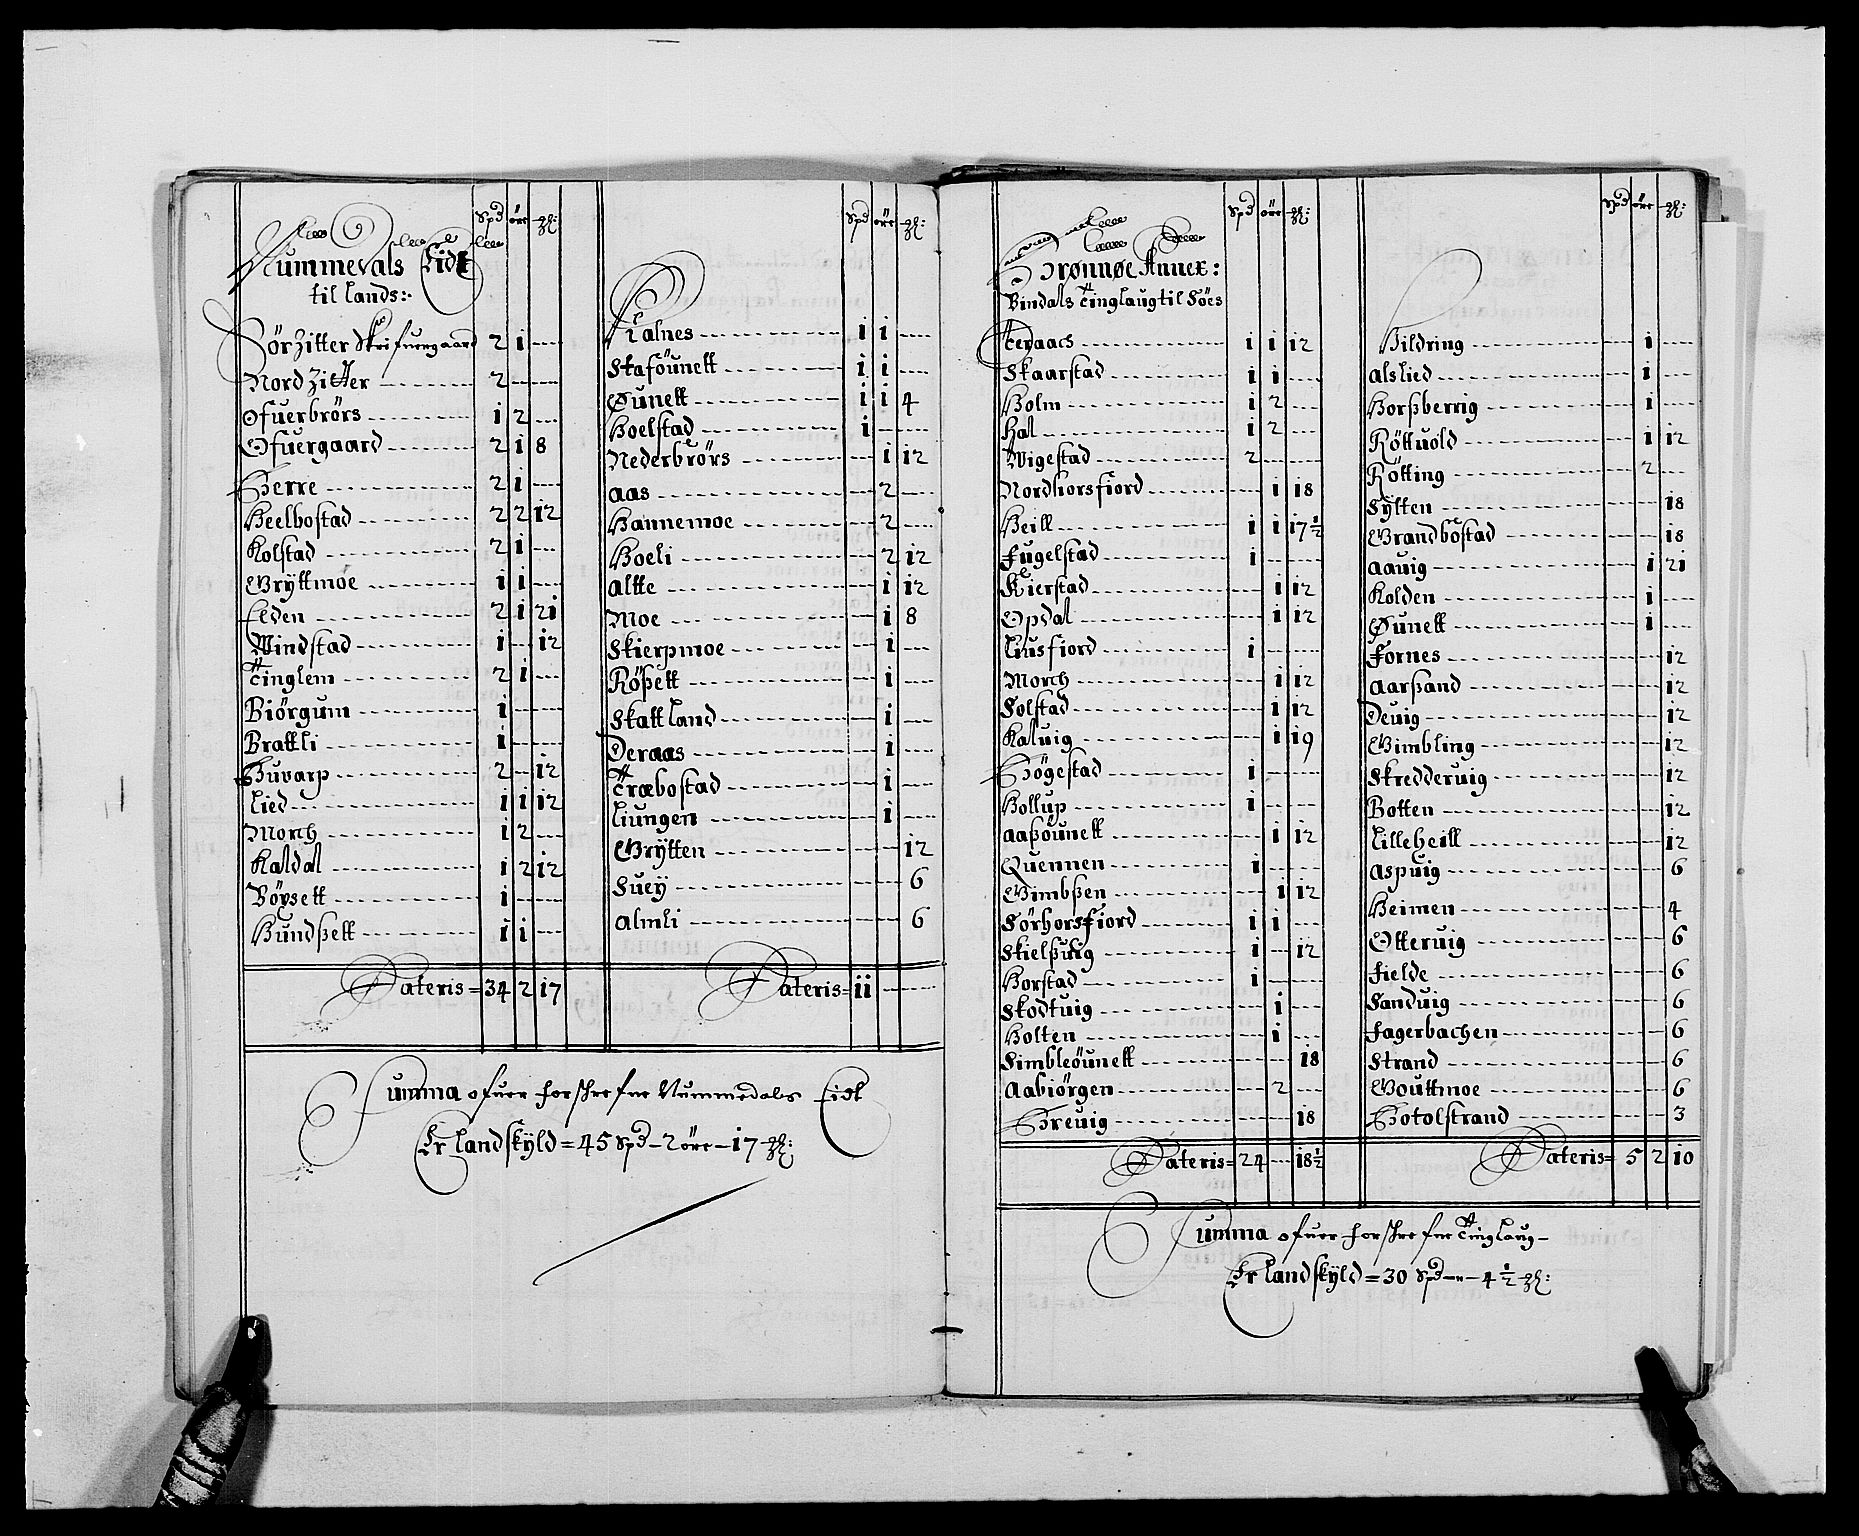 Spd öre
Nummedals Eidt
til lands:
SörZitter Skrifuergaard 2 1
Nord Zitter 2
Ofuerbrörs 1 2
Ofuergaard 2 1 8
Herre 2 1
Heelbostad 2 2 12
Kolstad 2 1
Grÿttmoe 1 1
Elden 2 1 21
Windstad 1 12
Tinglem 2 1
Biörgum 1
Brattli 1
Huvarp 2 12
Lied 1 1 12
Morch 1 2
Kaldal 1 2 12
Böysett 1
Hundßett 1 1
Lateris = 34 2 17
Spd öre
Kialnes 1 1
Staföunett 1 1
Øunett 1 1 4
Hoelstad 1
Nederbrörs 1 12
Aas 2
Hannemoe 2
Hoeli 2 12
Altte 1 12
Moe 1 8
Skierpmoe 1
Rößett 1
Skattland 1
Deraas 1
Træbostad 1
Liungen 1
Grÿtten 12
Suey 6
Almli 6
Lateris = 11
Summa ofuer forschrefne Nummedals Eidt
Er landskÿld = 45 Spd - 2 öre - 17
Spd öre
Brønnøe Annex:
Bindals Tinglaug til Söes
Teraacs 1 1 12
Skaarstad 1 1
Holm 1 2
Hal 1 2
Wigestad 2
Nordhorsfiord 1 18
Heill 1 1 17½
Fugelstad 1
Kierstad 1 12
Opdal 1 12
Liusfiord 1
Morch 1 12
Solstad 1 12
Kaluig 1 19
Högestad 1
Hollup 1
Aaßöunett 1 12
Quennen 1
Gimbßen 1 12
Sörhorsfiord 1 1
Skielßuig 1 12
Horstad 1
Skodtuig 1
Holten 1
Simbleöunett 18
Aabiörgen 2
Greuig 18
Lateris = 24 18½
Spd öre
Hildring 1
Alslied 1
Horßberrig 1
Röttuold 1 12
Rötting 2
Sÿtten 18
Grandbostad 18
Aauig 1 21
Kolden 1
Øunett 1
Fornes 12
Aarßand 12
Deuig 12
Gimbling 12
Skredderuig 12
Botten 12
Lilleheill 12
Aspuig 6
Heimen 4
Otteruig 6
Fielde 6
Sanduig 6
Fagerbachen 6
Strand 6
Gouttmoe 6
Gotolstrand 3
Lateris = 5 2 10
Summa ofuer forschrefne Tinglaug
Er landskÿld = 30 Spd - 4½